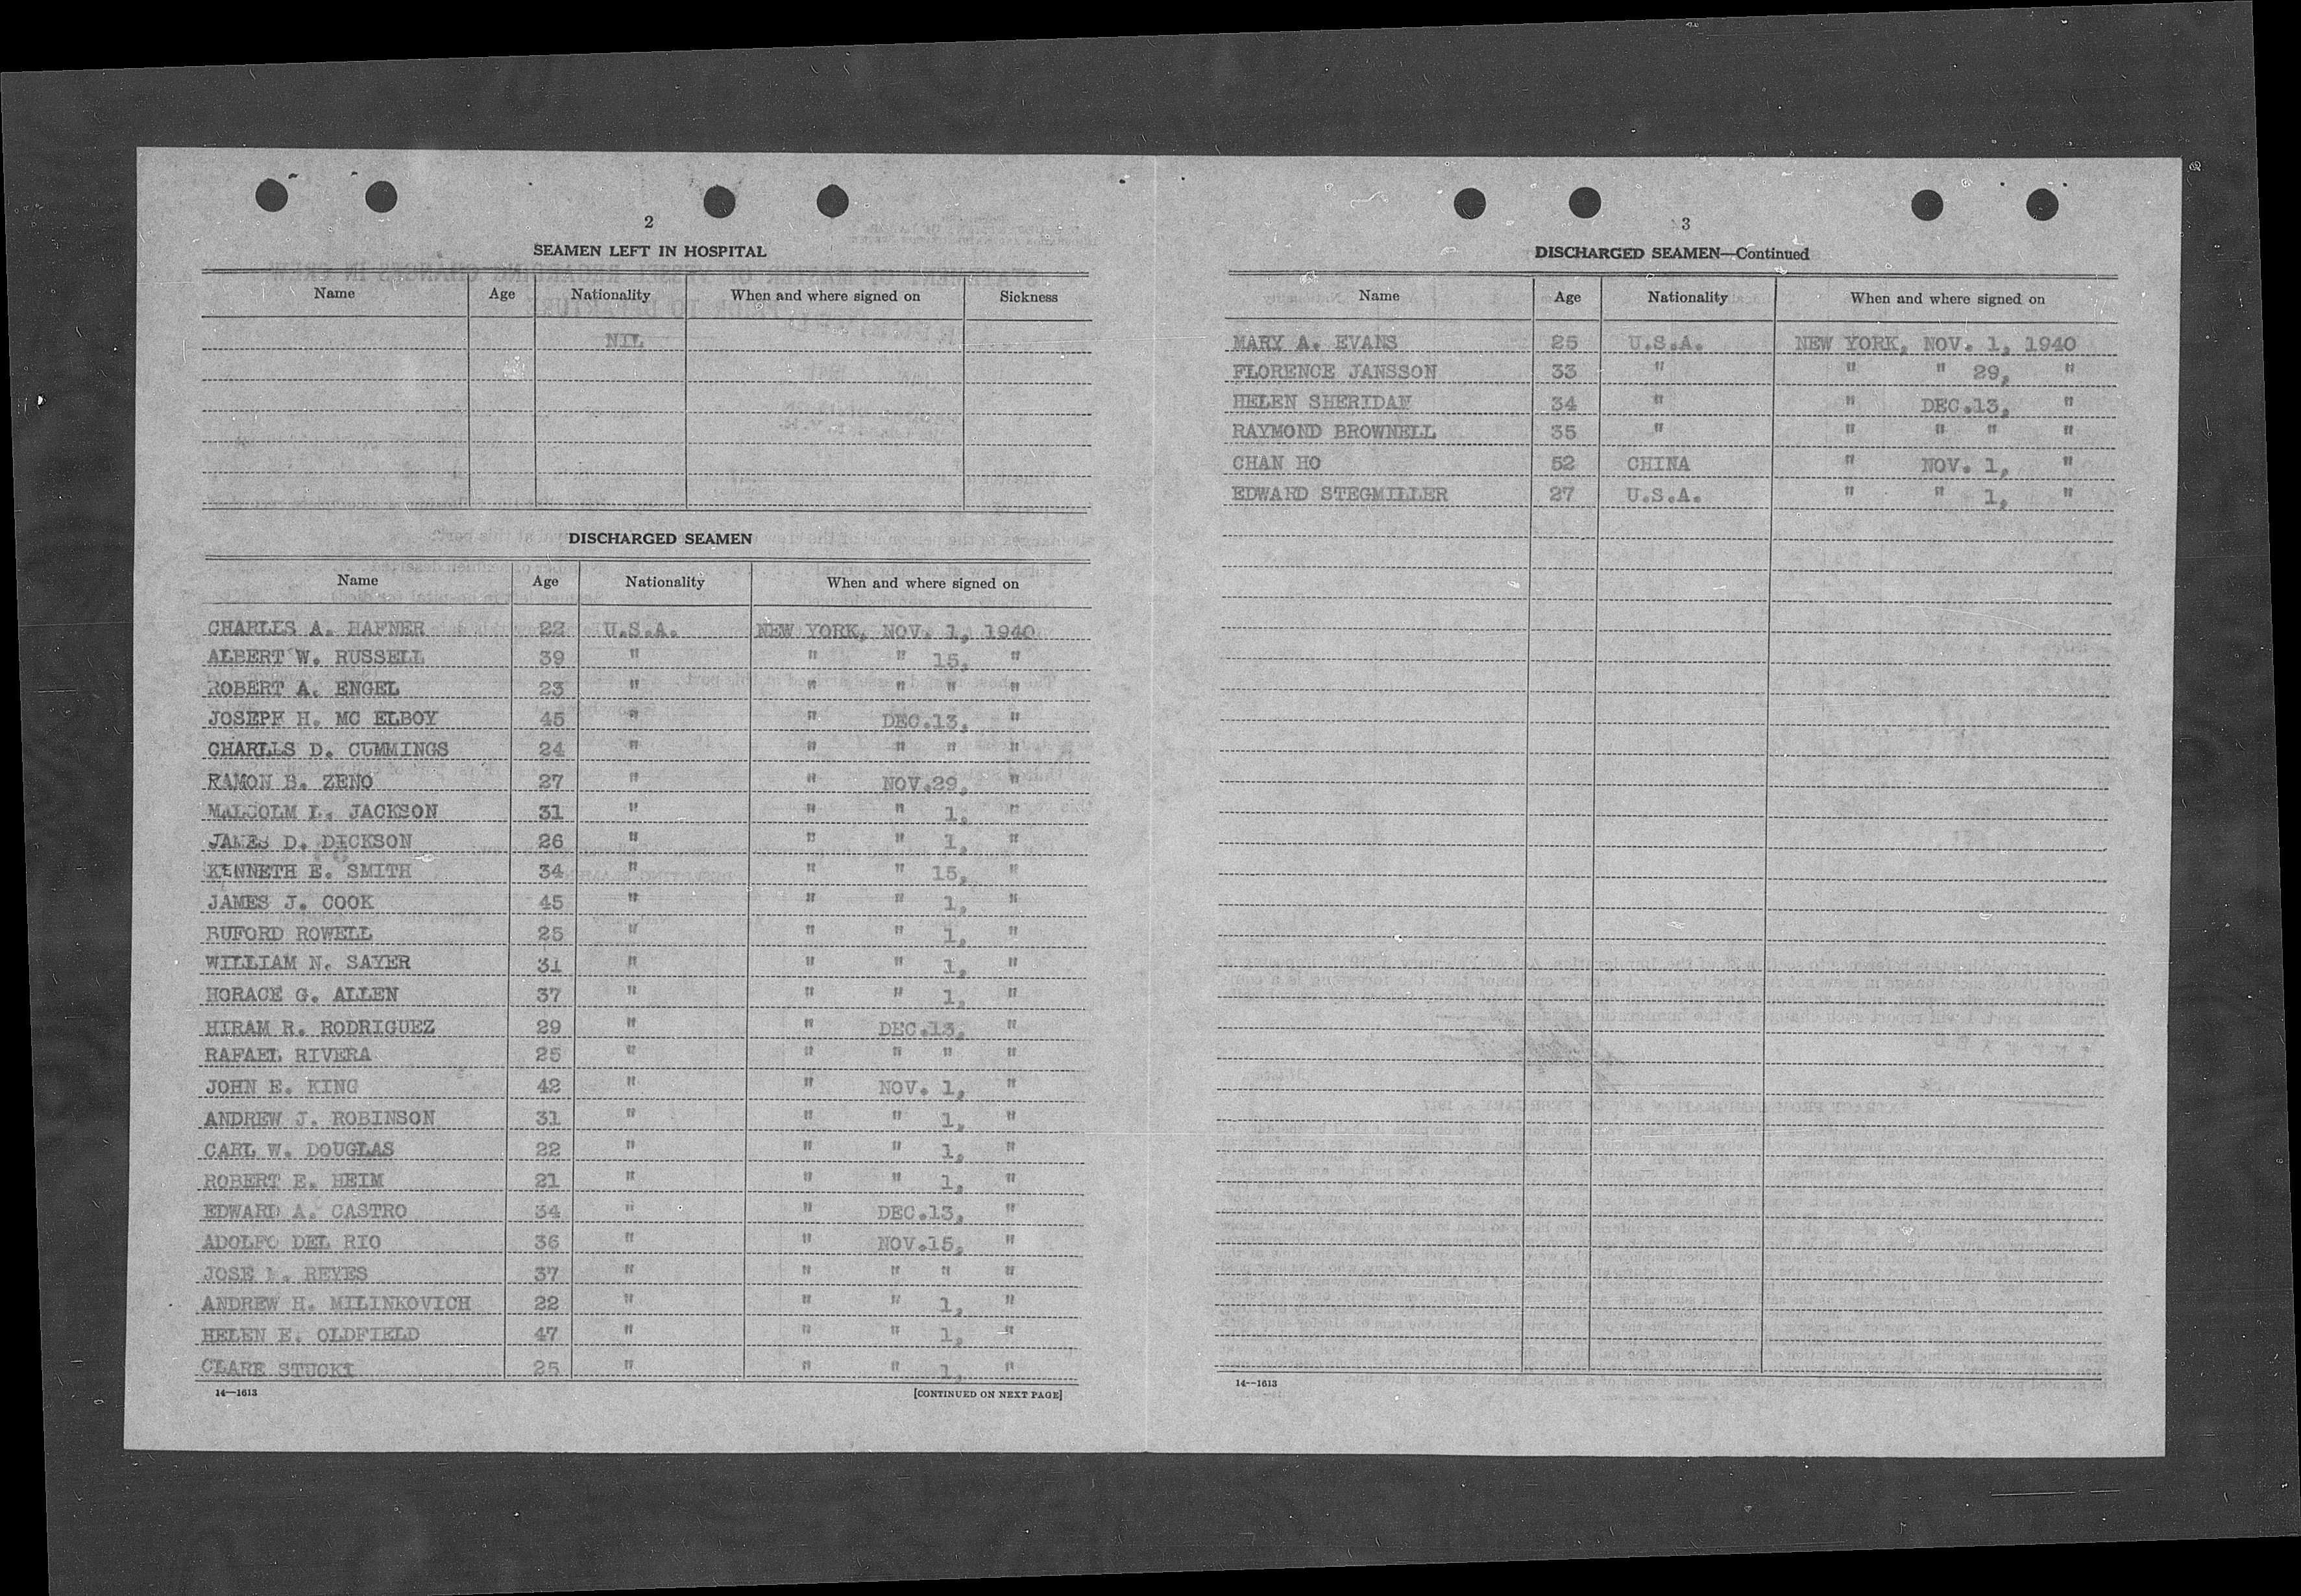 2
SEAMEN LEFT IN HOSPITAL
Name Age Nationality When and where signed on Sickness
NIL
DISCHARGED SEAMEN
Name Age Nationality When and where signed on
CHARLES A. HAFNER 22 U.S.A. NEW YORK, NOV. 1, 1940
ALBERT W. RUSSELL 39 " " " 15, "
ROBERT A. ENGEL 23 " " " " "
JOSEPH H. MC ELBOY 45 " " DEC.13, "
CHARLES D. CUMMINGS 24 " " " " "
RAMON B. ZENO 27 " " NOV.29, "
MALCOLM L. JACKSON 31 " " " 1, "
JAMES D. DICKSON 26 " " " 1, "
KENNETH E. SMITH 34 " " " 15, "
JAMES J. COOK 45 " " " 1, "
BUFORD ROWELL 25 " " " 1, "
WILLIAM N. SAYER 31 " " " 1, "
HORACE G. ALLEN 37 " " " 1, "
HIRAM R. RODRIGUEZ 29 " " DEC.13, "
RAFAEL RIVERA 25 " " " " "
JOHN E. KING 42 " " NOV. 1, "
ANDREW J. ROBINSON 31 " " " 1, "
CARL W. DOUGLAS 22 " " " 1, "
ROBERT E. HEIM 21 " " " 1, "
EDWARD A. CASTRO 34 " " DEC.13, "
ADOLFO DEL RIO 36 " " NOV.15, "
JOSE M. REYES 37 " " " " "
ANDREW H. MILINKOVICH 22 " " " 1, "
HELEN E. OLDFIELD 47 " " " 1, "
CLARE STUCKI 25 " " " 1, "
14—1613 [CONTINUED ON NEXT PAGE]
3
DISCHARGED SEAMEN—Continued
Name Age Nationality When and where signed on
MARY A. EVANS 25 U.S.A. NEW YORK, NOV. 1, 1940
FLORENCE JANSSON 33 " " " 29, "
HELEN SHERIDAN 34 " " DEC.13, "
RAYMOND BROWNELL 35 " " " " "
CHAN HO 52 CHINA " NOV. 1, "
EDWARD STEGMILLER 27 U.S.A. " " 1, "
14—1613